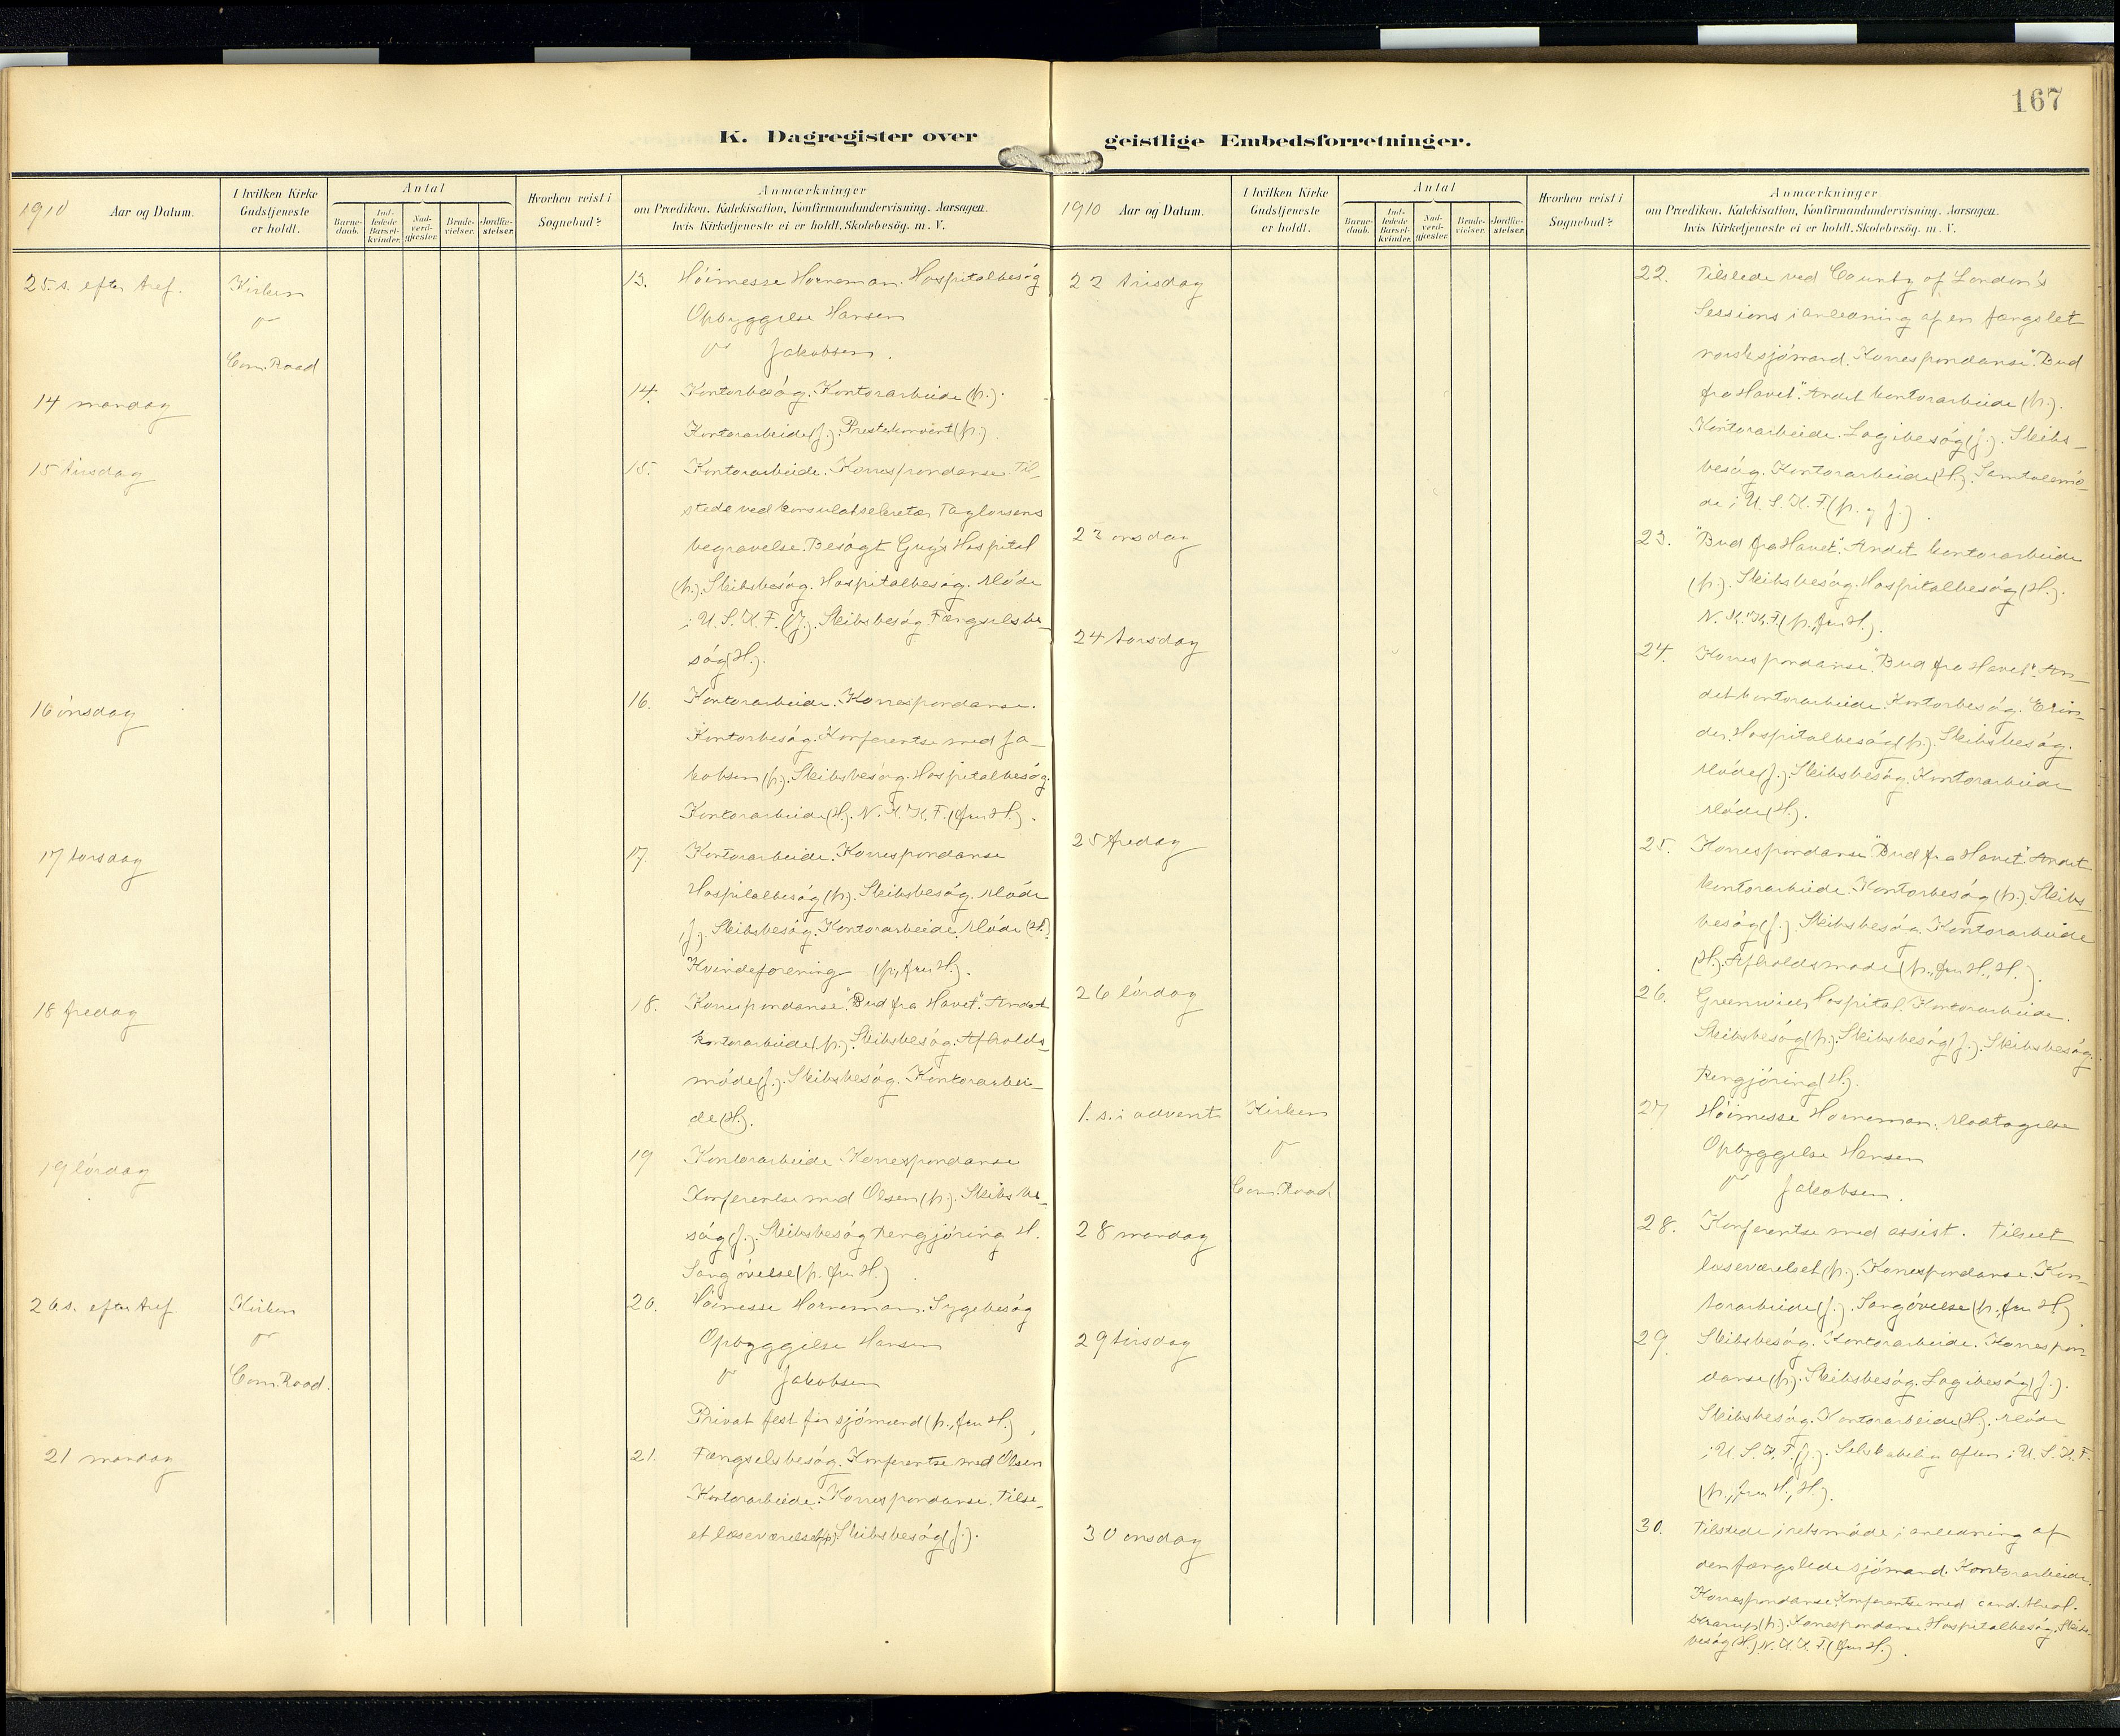 167
K. Dagregister over
geistlige Embedsforretninger.
1910
Aar og Datum.
I hvilken Kirke
Gudstjeneste
er holdt.
Antal
Barne-
daab.
Ind-
ledede
Barsel-
kvinder.
Nad-
verd-
gjæster.
Brude-
vielser.
Jordfæ-
stelser.
Hvorhen reist i
Sognebud?
Anmærkninger
om Prædiken, Katekisation, Konfirmandundervisning. Aarsagen,
hvis Kirketjeneste ei er holdt. Skolebesög. m. V.
25. s. efter tref.
Kirken
Com. Road
13. Höimesse Horneman. Hospitalbesög
Opbyggelse Hansen
Jakobsen.
14 mandag
14. Kontorbesög. Kontorarbeide (p.).
Kontorarbeide (J.). Prestekonvent (p.).
15 tirsdag
15. Kontorarbeide. Korrespondanse. Til-
stede ved konsulatsekretær Taylorsens
begravelse. Besögt Guy's Hospital
(p.). Skibsbesög. Hospitalbesög. Möde
i U. S. K. F. (J.). Skibsbesög. Fængselsbe-
sög (H.).
16 onsdag
16. Kontorarbeide. Korrespondanse.
Kontorbesög. Konferentse med Ja-
kobsen (p.). Skibsbesög. Hospitalbesög.
Kontorarbeide (H.). N. K. K. F. (fru H.).
17 torsdag
17. Kontorarbeide. Korrespondanse
Hospitalbesög (p.). Skibsbesög. Möde
(J.). Skibsbesög. Kontorarbeide. Möde (H.)
Kvindeforening (p., fru H.).
18 fredag
18. Korrespondanse. "Bud fra Havet". Andet
kontorarbeide (p.). Skibsbesög. Afholds-
möde (J.). Skibsbesög. Kontorarbei-
de (H.).
19 lördag
19 Kontorarbeide. Korrespondanse
Konferentse med Olsen (p.). Skibsbe-
sög (J.). Skibsbesög Rengjöring H.
Sangövelse (p. fru H.).
26. s. efter tref
Kirken
Com. Road.
20. Höimesse Horneman. Sygebesög
Opbyggelse Hansen
Jakobsen
Privat fest for sjömænd (p., fru H.)
21 mandag
21. Fængselsbesög. Konferentse med Olsen
Kontorarbeide. Korrespondanse. Tilse-
et læseværelset (p.). Skibsbesög (J.).
1910
Aar og Datum.
I hvilken Kirke
Gudstjeneste
er holdt.
Antal
Barne-
daab.
Ind-
ledede
Barsel-
kvinder.
Nad-
verd-
gjæster.
Brude-
vielser.
Jordfæ-
stelser.
Hvorhen reist i
Sognebud?
Anmærkninger
om Prædiken, Katekisation, Konfirmandundervisning. Aarsagen,
hvis Kirketjeneste ei er holdt. Skolebesög. m. V.
22 tirsdag
22. Tilstede ved County of London's
Sessions i anledning af en fængslet
norsk sjömand. Korrespondanse. "Bud
fra Havet". Andet kontorarbeide (p.).
Kontorarbeide. Logibesög (J.). Skibs-
besög. Kontorarbeide (H.). Samtalemö-
de i U. S. K. F. (p. og J.).
23 onsdag
23. "Bud fra Havet". Andet kontorarbeide
(p.). Skibsbesög. Hospitalbesög (H.).
N. K. K. F. (p., fru H.).
24 torsdag
24. Korrespondanse. "Bud fra Havet". An-
det kontorarbeide. Kontorbesög. Erin-
der. Hospitalbesög (p.). Skibsbesög.
Möde (J.). Skibsbesög. Kontorarbeide
Möde (H.).
25 fredag
25. Korrespondanse "Bud fra Havet". Andet
kontorarbeide. Kontorbesög (p.). Skibs-
besög (J.). Skibsbesög. Kontorarbeide
(H.). Afholdsmöde (p., fru H., H.).
26 lördag
26. Greenwich Hospital. Kontorarbeide.
Skibsbesög (p.). Skibsbesög (J.). Skibsbesög.
Rengjöring (H.).
1. s. i advent
Kirken
Com. Road
27 Höimesse Horneman. Modtagelse
Opbyggelse Hansen
Jakobsen.
28 mandag
28. Konferentse med assist. Tilseet
læseværelset (p.). Korrespondanse. Kon-
torarbeide (J.). Sangövelse (p., fru H.)
29 tirsdag
29. Skibsbesög. Kontorarbeide. Korrespon-
danse (p.). Skibsbesög. Logibesög (J.).
Skibsbesög. Kontorarbeide (H.). Möde
i U. S. K. F. (J.). Selskabelig aften i U. S. K. F.
(p., fru H., H.).
30 onsdag
30. Tilstede i retsmöde i anledning af
den fængslede sjömand. Kontorarbeide.
Korrespondanse. Konferentse med cand. theol.
(p.). Korrespondanse. Hospitalbesög. Skibs-
besög (H.) N. K. K. F. (fru H.).